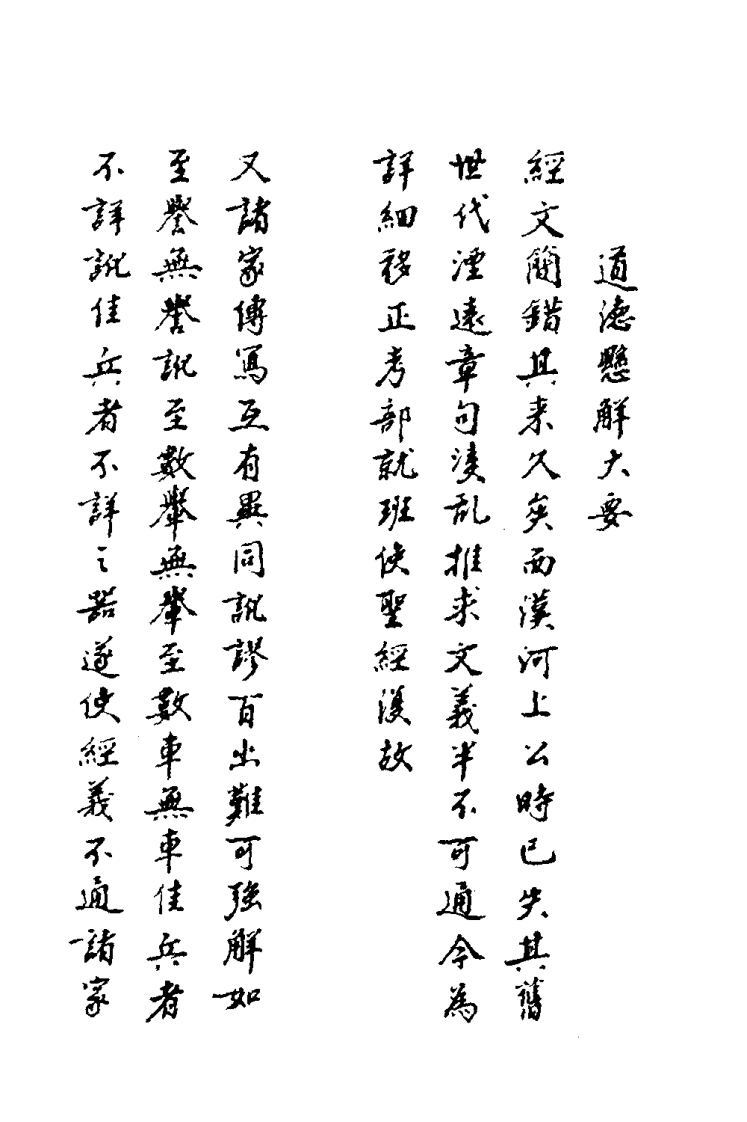 道德懸解大要
經文簡錯其来久矣而漢河上公時已失其舊
世代湮遠章句淩乱推求文義半不可通今為
詳細移正考部就班使聖經復故
又諸家傳寫互有異同訛謬百出難可強解如
至譽無譽訛至數轝無轝至數車無車佳兵者
不詳訛佳兵者不詳之器遂使經義不通諸家